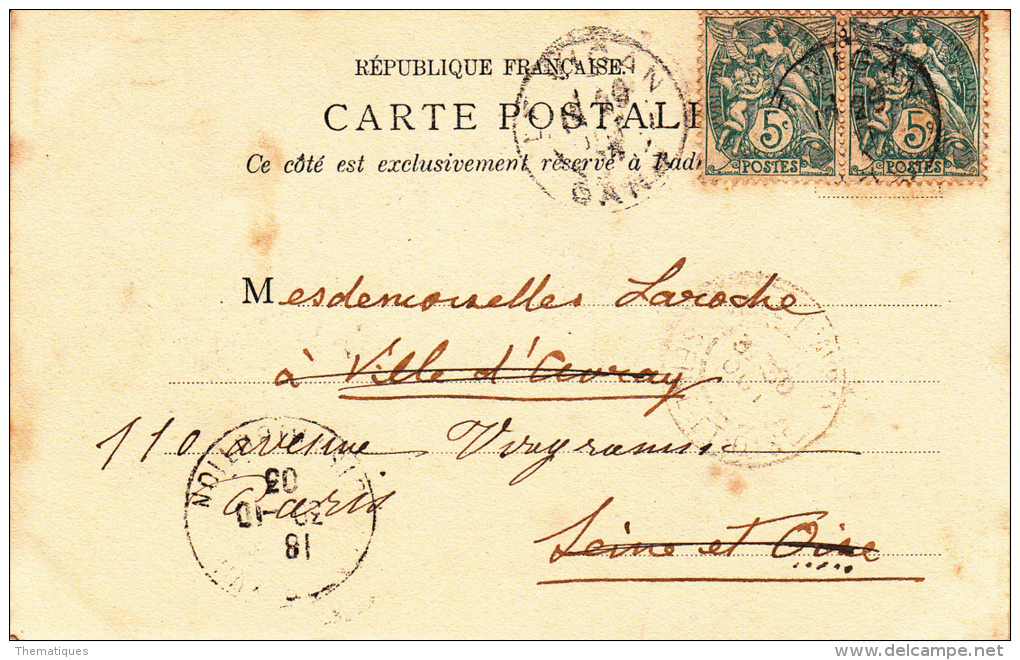 RÉPUBLIQUE FRANÇAISE.
CARTE POSTALE
Ce côté est exclusivement réservé à l'adr
LE VIGAN
GARD
5c 5c
POSTES POSTES
Mesdemoiselles Laroche
à Ville d'Avray
110 avenue
Paris
Seine et Oise
DISTRIBUTION
03
20-10
18
Thematiques
delcampe.net